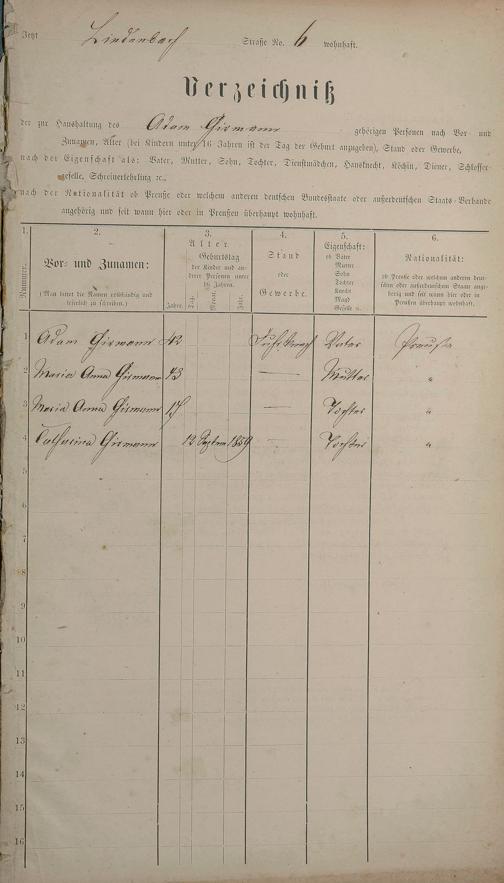 Jetzt Lindenbach Straße No. 6 wohnhaft.
Verzeichniß
der zur Haushaltung des Adam Girmann gehörigen Personen nach Vor- und
Zunamen, Alter (bei Kindern unter 16 Jahren ist der Tag der Geburt anzugeben), Stand oder Gewerbe,
nach der Eigenschaft als: Vater, Mutter, Sohn, Tochter, Dienstmädchen, Hausknecht, Köchin, Diener, Schlosser-
geselle, Schreinerlehrling ꝛc.,
nach der Nationalität ob Preuße oder welchem anderen deutschen Bundesstaate oder außerdeutschen Staats-Verbande
angehörig und seit wann hier oder in Preußen überhaupt wohnhaft.
1. 2. 3. 4. 5. 6.
Nummer.
Vor- und Zunamen:
(Man bittet die Namen vollständig und
leserlich zu schreiben.)
Alter
Geburtstag
der Kinder und an-
derer Personen unter
16 Jahren.
Jahre. Tag. Monat. Jahr.
Stand
oder
Gewerbe.
Eigenschaft:
ob Vater
Mutter
Sohn
Tochter
Knecht
Magd
Geselle ꝛc.
Nationalität:
ob Preuße oder welchem anderen deut-
schen oder außerdeutschen Staate ange-
hörig und seit wann hier oder in
Preußen überhaupt wohnhaft.
1 Adam Girmann Vater Preuße
2 Maria Anna Girmann 43 — Mutter "
3 Maria Anna Girmann 17 — Tochter "
4 Catharina Girmann 12 1859 — Tochter "
5
6
7
8
9
10
11
12
13
14
15
16